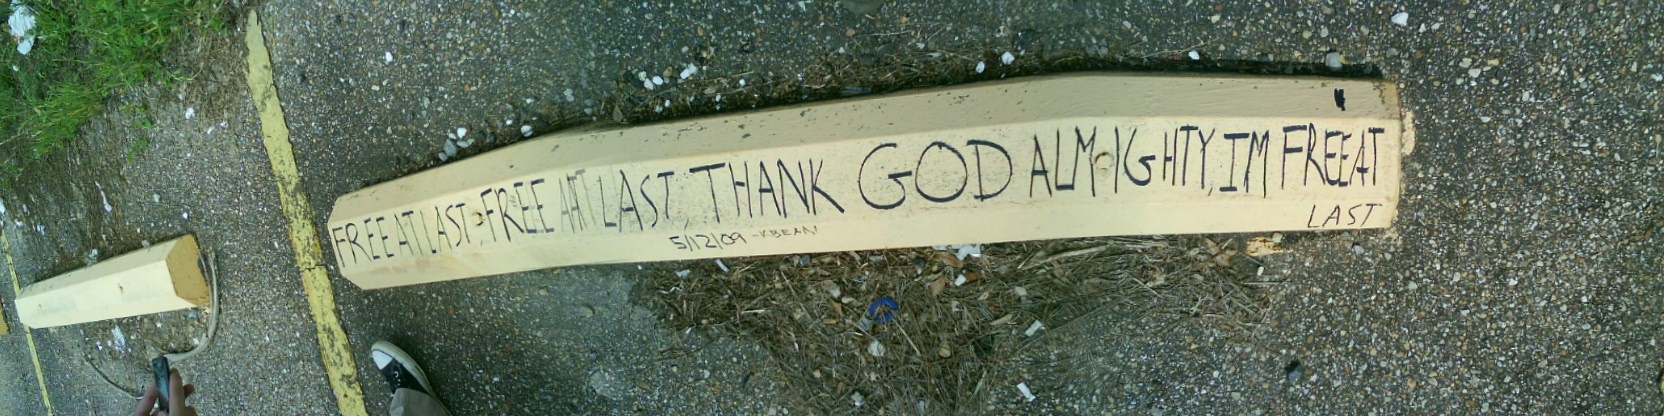 FREE AT LAST, FREE AAT LAST, THANK GOD ALMIGHTY, I'M FREE AT
LAST
5/12/09 -KBEAN